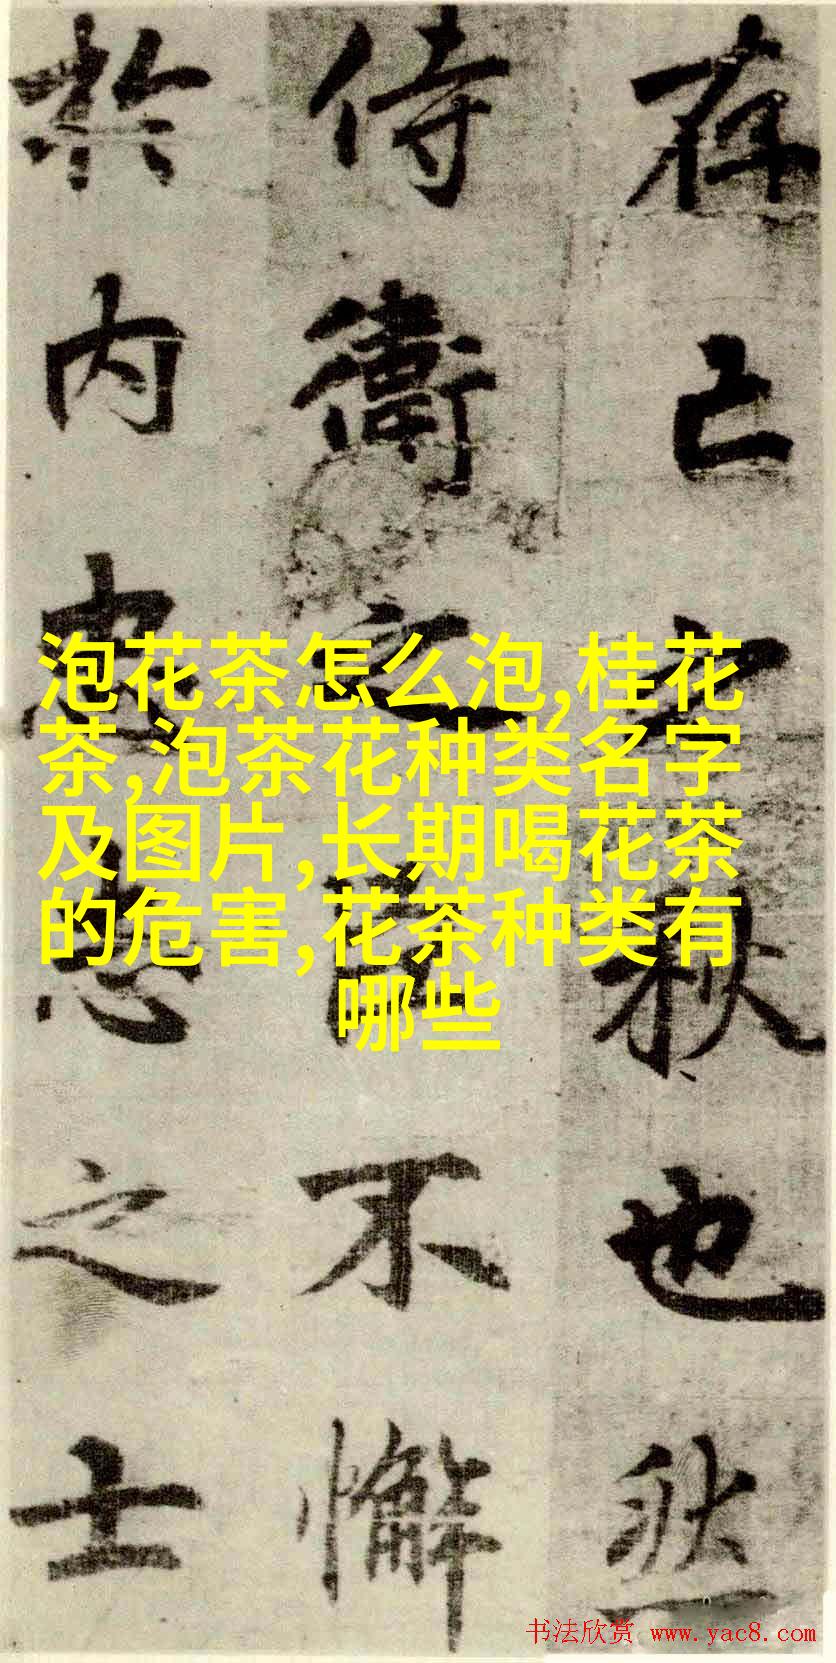 存亡之秋也然
侍衛之臣不懈
於内忠志之士
泡花茶怎么泡,桂花
茶,泡茶花种类名字
及图片,长期喝花茶
的危害,花茶种类有
哪些
书法欣赏 www.yac8.com